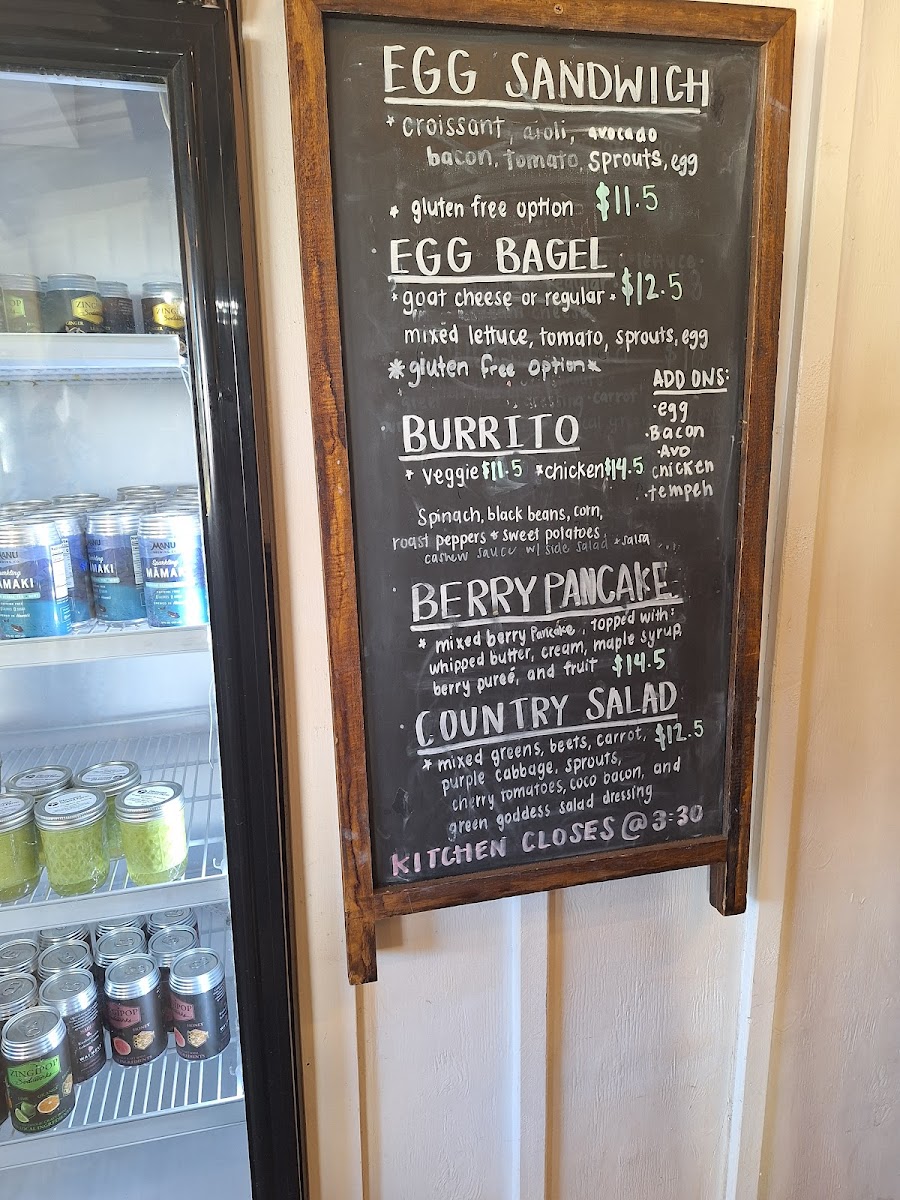 EGG SANDWICH
* croissant, aioli, avocado
bacon, tomato, sprouts, egg
* gluten free option $11.5
EGG BAGEL
* goat cheese or regular * $12.5
mixed lettuce, tomato, sprouts, egg
*gluten free option*
ADD ONS:
·egg
·Bacon
·Avo
chicken
·tempeh
BURRITO
* veggie $11.5 *chicken $14.5
Spinach, black beans, corn,
roast peppers * sweet potatoes
cashew sauce w/ side salad * salsa
BERRY PANCAKE
* mixed berry Pancake, topped with:
whipped butter, cream, maple syrup,
berry pureé, and fruit $14.5
COUNTRY SALAD
* mixed greens, beets, carrot, $12.5
purple cabbage, sprouts,
cherry tomatoes, coco bacon, and
green goddess salad dressing
KITCHEN CLOSES @ 3:30
MANU
MĀMAKI
MANU
Sparkling
MĀMAKI
ZINGIPOP
HONEY
ZINGIPOP